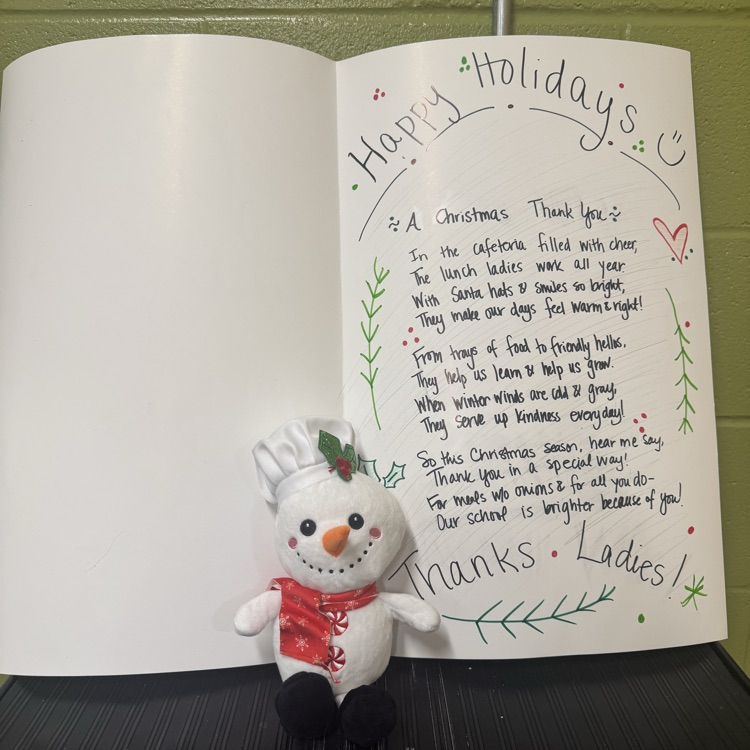 Happy Holidays
~ A Christmas Thank You ~
In the cafetoria filled with cheer,
The lunch ladies work all year.
With Santa hats & smiles so bright,
They make our days feel warm & right!
From trays of food to friendly hellos,
They help us learn & help us grow.
When winter winds are cold & gray,
They serve up kindness everyday!
So this Christmas season, hear me say,
Thank you in a special way!
For meals w/o onions & for all you do-
Our school is brighter because of you!
Thanks Ladies!